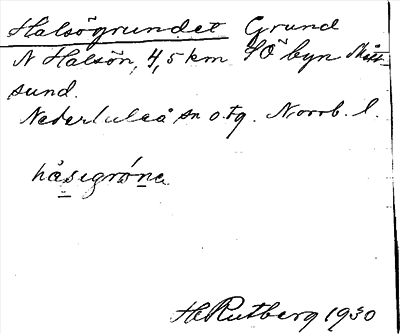 Halsögrundet Grund
N Halsön, 4,5 km SÖ byn Mått-
sund.
Nederluleå sn o. tg. Norrb. l.
håsegróne
H Rutberg 1930